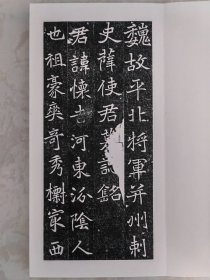 魏故平北將軍并州刺
史薛使君墓誌銘
君諱懐吉河東汾陰人
也祖豪爽奇秀欟家西